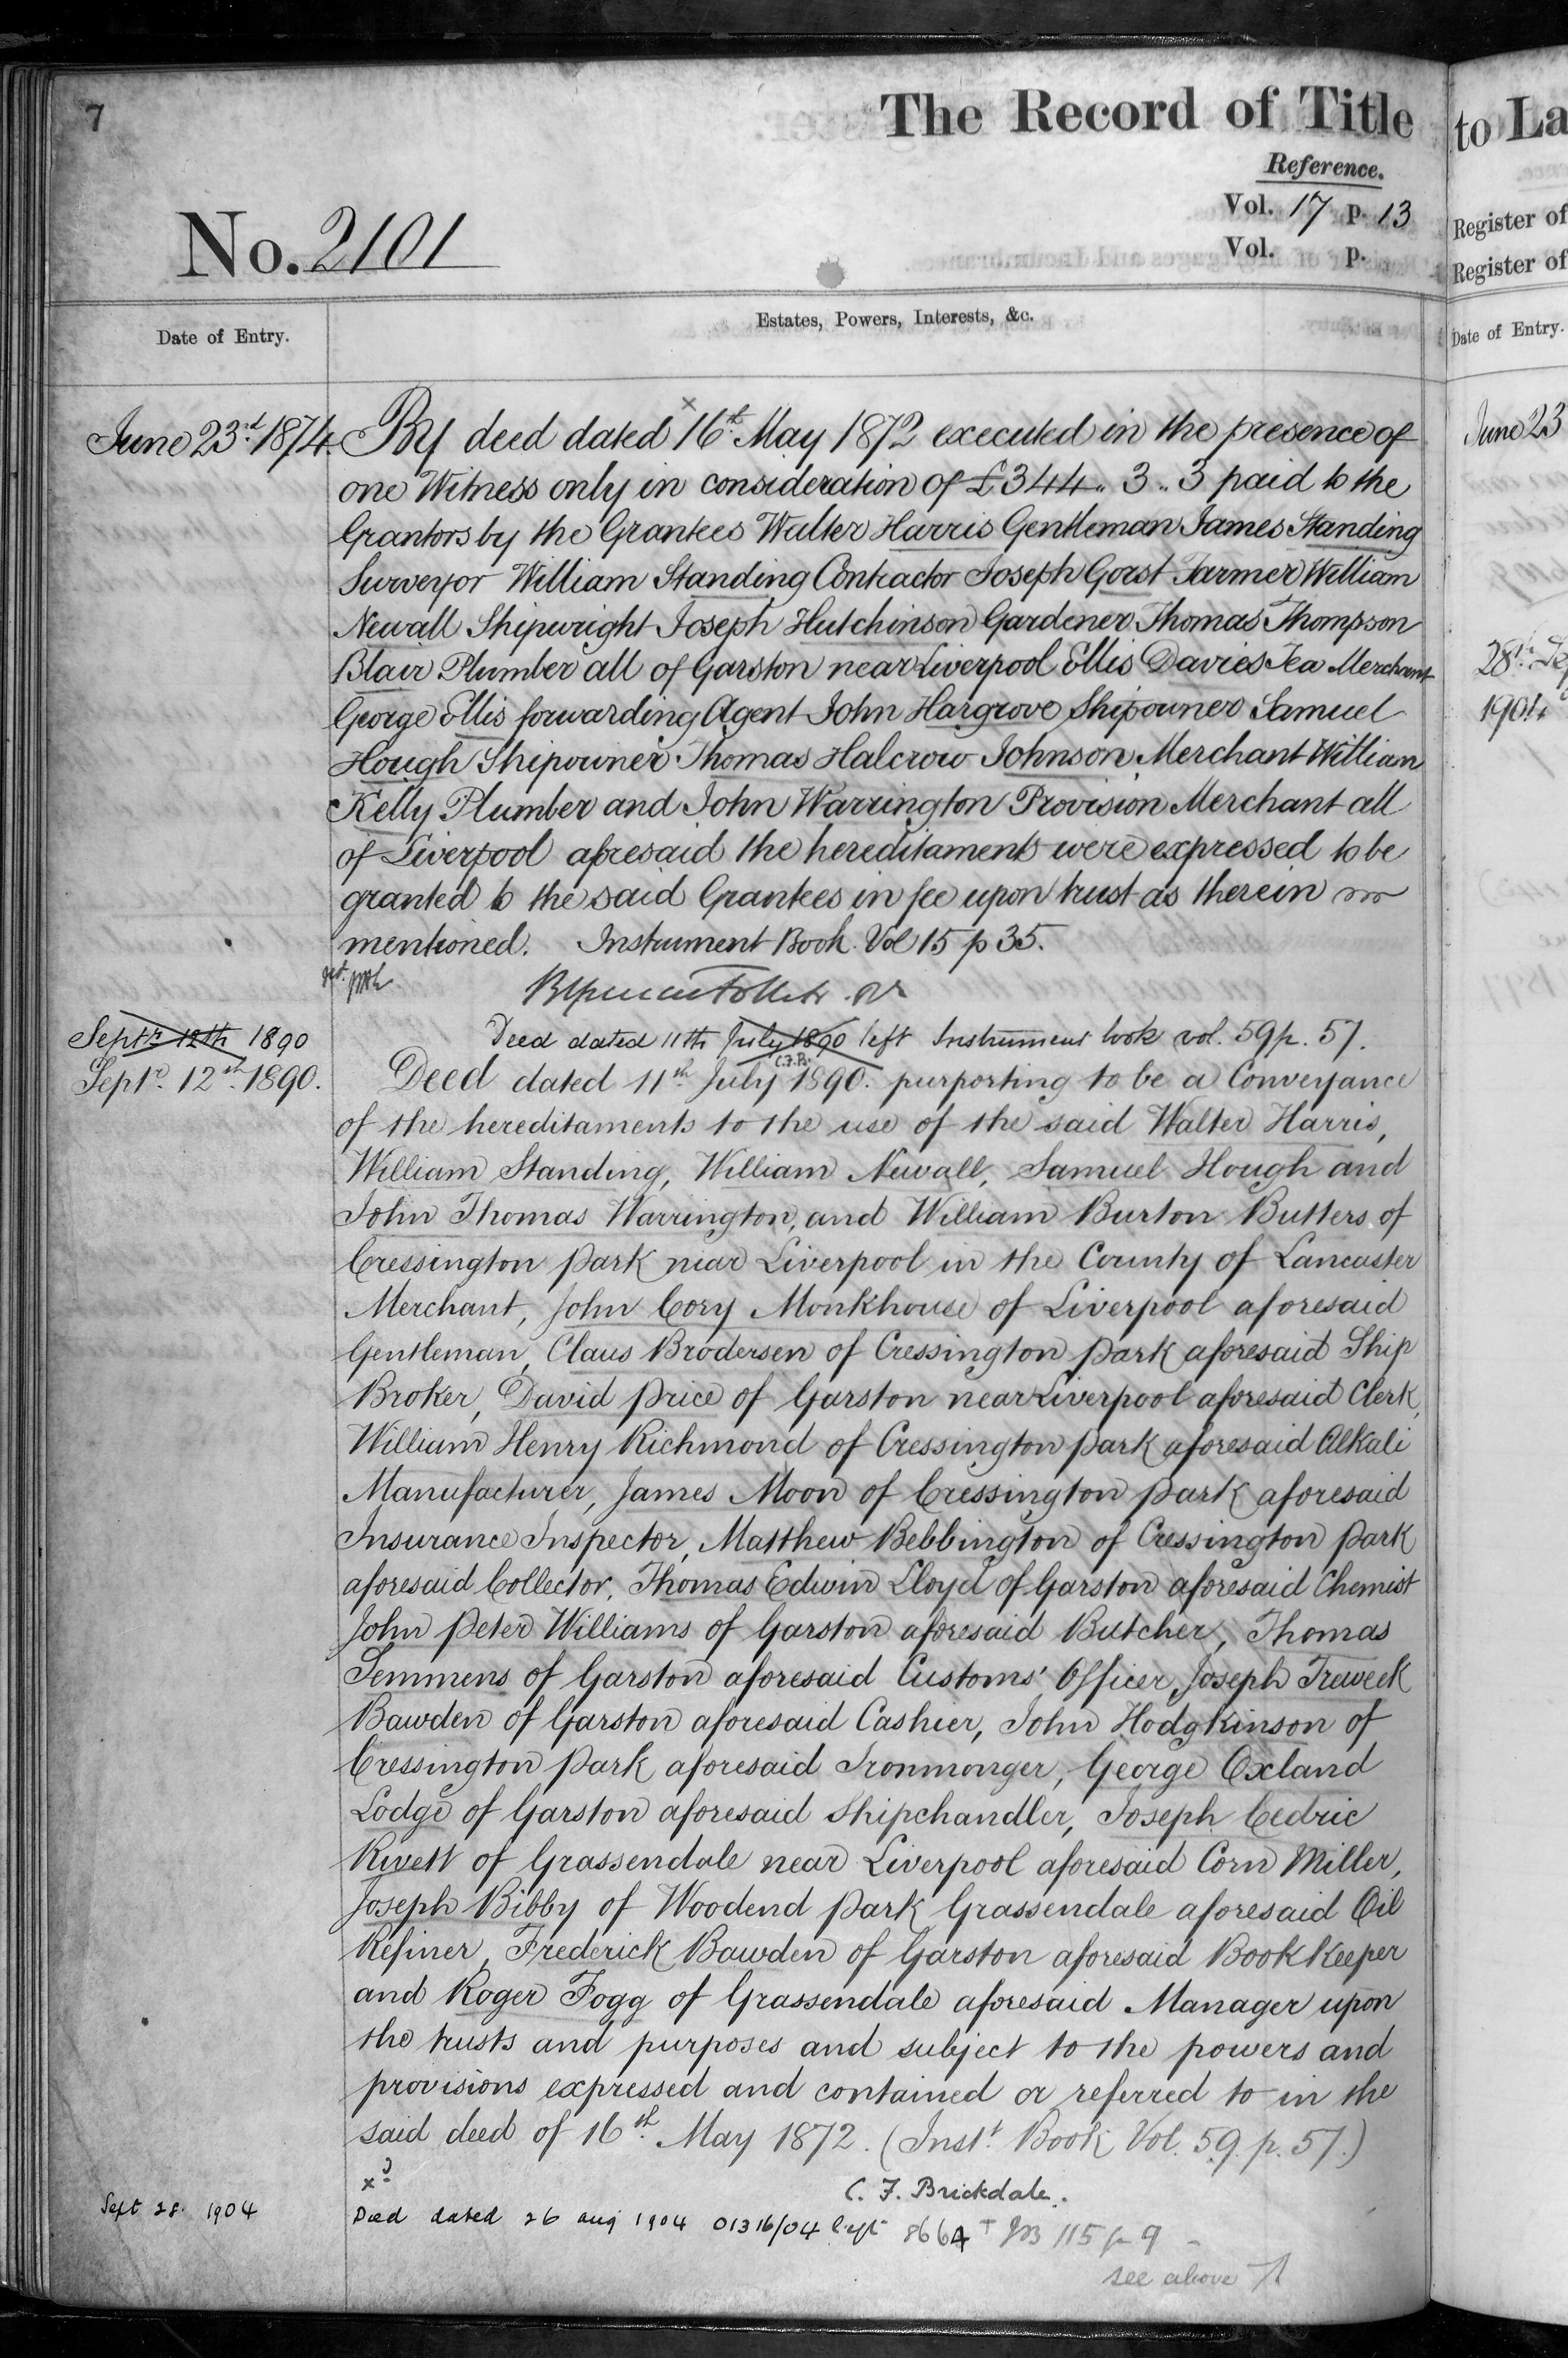 7
The Record of Title
Reference.
Vol. 17 p. 13
Vol. p.
No. 2101
Date of Entry.
Estates, Powers, Interests, &c.
June 23rd 1874. By deed dated × 16th May 1872 executed in the presence of
one Witness only in consideration of £344.. 3.. 3 paid to the
Grantors by the Grantees Walter Harris Gentleman James Standing
Surveyor William Standing Contractor Joseph Gorst Farmer William
Newall Shipwright Joseph Hutchinson Gardener Thomas Thompson
Blair Plumber all of Garston near Liverpool Ellis Davies Tea Merchant
George Ellis forwarding Agent John Hargrove Shipowner Samuel
Hough Shipowner Thomas Halcrow Johnson Merchant William
Kelly Plumber and John Warrington Provision Merchant all
of Liverpool aforesaid the hereditaments were expressed to be
granted to the said Grantees in fee upon trust as therein
mentioned. Instrument Book Vol 15 p 35.
Septr 12th 1890 Deed dated 11th July 1890 left Instrument book vol. 59 p. 57.
C.F.B.
Septr 12th 1890. Deed dated 11th July 1890. purporting to be a Conveyance
of the hereditaments to the use of the said Walter Harris,
William Standing, William Newall, Samuel Hough and
John Thomas Warrington, and William Burton Butters of
Cressington Park near Liverpool in the County of Lancaster
Merchant, John Cory Monkhouse of Liverpool aforesaid
Gentleman, Claus Brodersen of Cressington Park aforesaid Ship
Broker, David Price of Garston near Liverpool aforesaid Clerk,
William Henry Richmond of Cressington Park aforesaid Alkali
Manufacturer, James Moon of Cressington Park aforesaid
Insurance Inspector, Matthew Bebbington of Cressington Park
aforesaid Collector, Thomas Edwin Lloyd of Garston aforesaid Chemist
John Peter Williams of Garston aforesaid Butcher, Thomas
Semmens of Garston aforesaid Customs' Officer, Joseph Treweek
Bawden of Garston aforesaid Cashier, John Hodgkinson of
Cressington Park aforesaid Ironmonger, George Oxland
Lodge of Garston aforesaid Shipchandler, Joseph Cedric
Rivett of Grassendale near Liverpool aforesaid Corn Miller,
Joseph Bibby of Woodend Park Grassendale aforesaid Oil
Refiner, Frederick Bawden of Garston aforesaid Book Keeper
and Roger Fogg of Grassendale aforesaid Manager upon
the trusts and purposes and subject to the powers and
provisions expressed and contained or referred to in the
said deed of 16th May 1872. (Inst. Book Vol. 59. p. 57.)
C. F. Brickdale.
Sept 28. 1904 Deed dated 26 aug 1904 01316/04 left 8664 IB 115 p 9
see above
to La
Register of
Register of
Date of Entry.
June 23
28th
1904